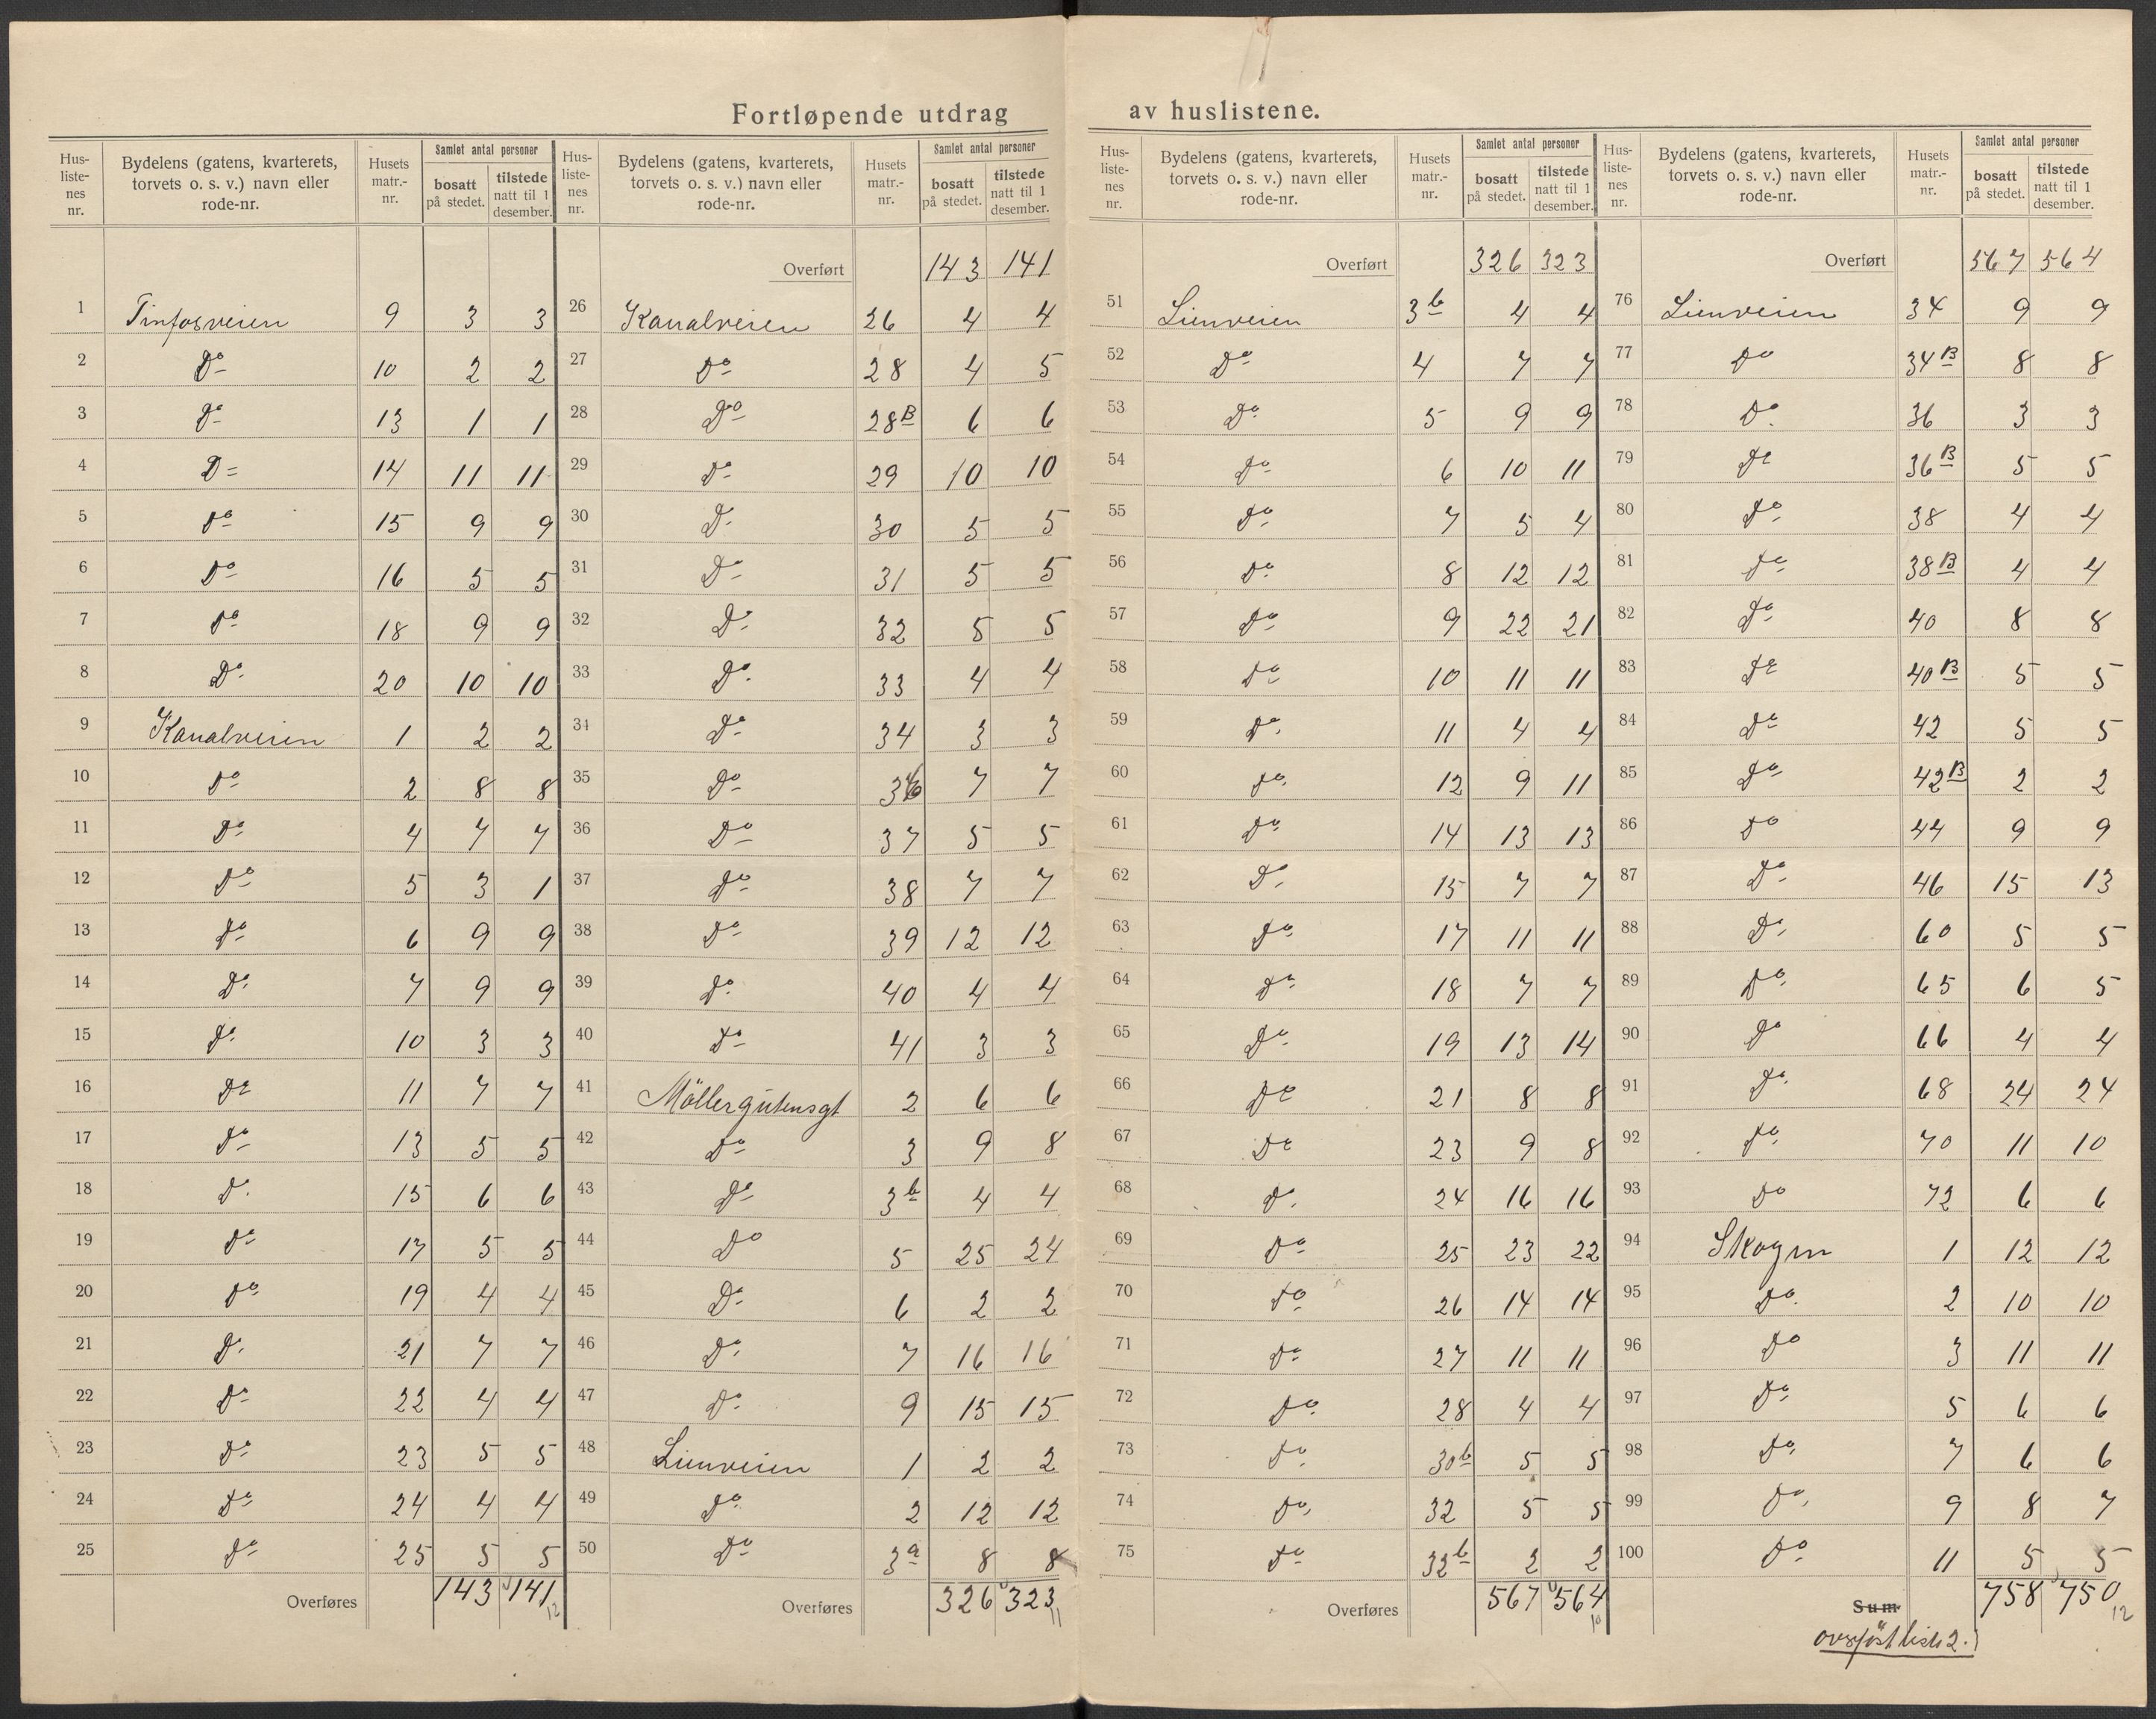 Fortløpende utdrag av huslistene.
Hus-liste-nes nr. | Bydelens (gatens, kvarterets, torvets o. s. v.) navn eller rode-nr. | Husets matr.-nr. | Samlet antal personer bosatt på stedet. | tilstede natt til 1 desember.
1 Tinfosveien 9 3 3
2 Do 10 2 2
3 Do 13 1 1
4 D= 14 11 11
5 Do 15 9 9
6 Do 16 5 5
7 Do 18 9 9
8 Do 20 10 10
9 Kanalveien 1 2 2
10 Do 2 8 8
11 Do 4 7 7
12 Do 5 3 1
13 Do 6 9 9
14 Do 7 9 9
15 Do 10 3 3
16 Do 11 7 7
17 Do 13 5 5
18 Do 15 6 6
19 Do 17 5 5
20 Do 19 4 4
21 Do 21 7 7
22 Do 22 4 4
23 Do 23 5 5
24 Do 24 4 4
25 Do 25 5 5
Overføres 143 141
12
Hus-liste-nes nr. | Bydelens (gatens, kvarterets, torvets o. s. v.) navn eller rode-nr. | Husets matr.-nr. | Samlet antal personer bosatt på stedet. | tilstede natt til 1 desember.
Overført 143 141
26 Kanalveien 26 4 4
27 Do 28 4 5
28 Do 28B 6 6
29 Do 29 10 10
30 Do 30 5 5
31 Do 31 5 5
32 Do 32 5 5
33 Do 33 4 4
34 Do 34 3 3
35 Do 36 7 7
36 Do 37 5 5
37 Do 38 7 7
38 Do 39 12 12
39 Do 40 4 4
40 Do 41 3 3
41 Möllergutensgt 2 6 6
42 Do 3 9 8
43 Do 3b 4 4
44 Do 5 25 24
45 Do 6 2 2
46 Do 7 16 16
47 Do 9 15 15
48 Lienveien 1 2 2
49 Do 2 12 12
50 Do 3a 8 8
Overføres 326 323
11
Hus-liste-nes nr. | Bydelens (gatens, kvarterets, torvets o. s. v.) navn eller rode-nr. | Husets matr.-nr. | Samlet antal personer bosatt på stedet. | tilstede natt til 1 desember.
Overført 326 323
51 Lienveien 3b 4 4
52 Do 4 7 7
53 Do 5 9 9
54 Do 6 10 11
55 Do 7 5 4
56 Do 8 12 12
57 Do 9 22 21
58 Do 10 11 11
59 Do 11 4 4
60 Do 12 9 11
61 Do 14 13 13
62 Do 15 7 7
63 Do 17 11 11
64 Do 18 7 7
65 Do 19 13 14
66 Do 21 8 8
67 Do 23 9 8
68 Do 24 16 16
69 Do 25 23 22
70 Do 26 14 14
71 Do 27 11 11
72 Do 28 4 4
73 Do 30b 5 5
74 Do 32 5 5
75 Do 32b 2 2
Overføres 567 564
10
Hus-liste-nes nr. | Bydelens (gatens, kvarterets, torvets o. s. v.) navn eller rode-nr. | Husets matr.-nr. | Samlet antal personer bosatt på stedet. | tilstede natt til 1 desember.
Overført 567 564
76 Lienveien 34 9 9
77 Do 34B 8 8
78 Do 36 3 3
79 Do 36B 5 5
80 Do 38 4 4
81 Do 38B 4 4
82 Do 40 8 8
83 Do 40B 5 5
84 Do 42 5 5
85 Do 42B 2 2
86 Do 44 9 9
87 Do 46 15 13
88 Do 60 5 5
89 Do 65 6 5
90 Do 66 4 4
91 Do 68 24 24
92 Do 70 11 10
93 Do 72 6 6
94 Skogen 1 12 12
95 Do 2 10 10
96 Do 3 11 11
97 Do 5 6 6
98 Do 7 6 6
99 Do 9 8 7
100 Do 11 5 5
Sum 758 750
12
overføst liste 2.